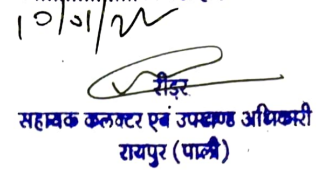 10/01/22
रीडर
सहायक कलक्टर एवं उपखण्ड अधिकारी
रायपुर (पाली)